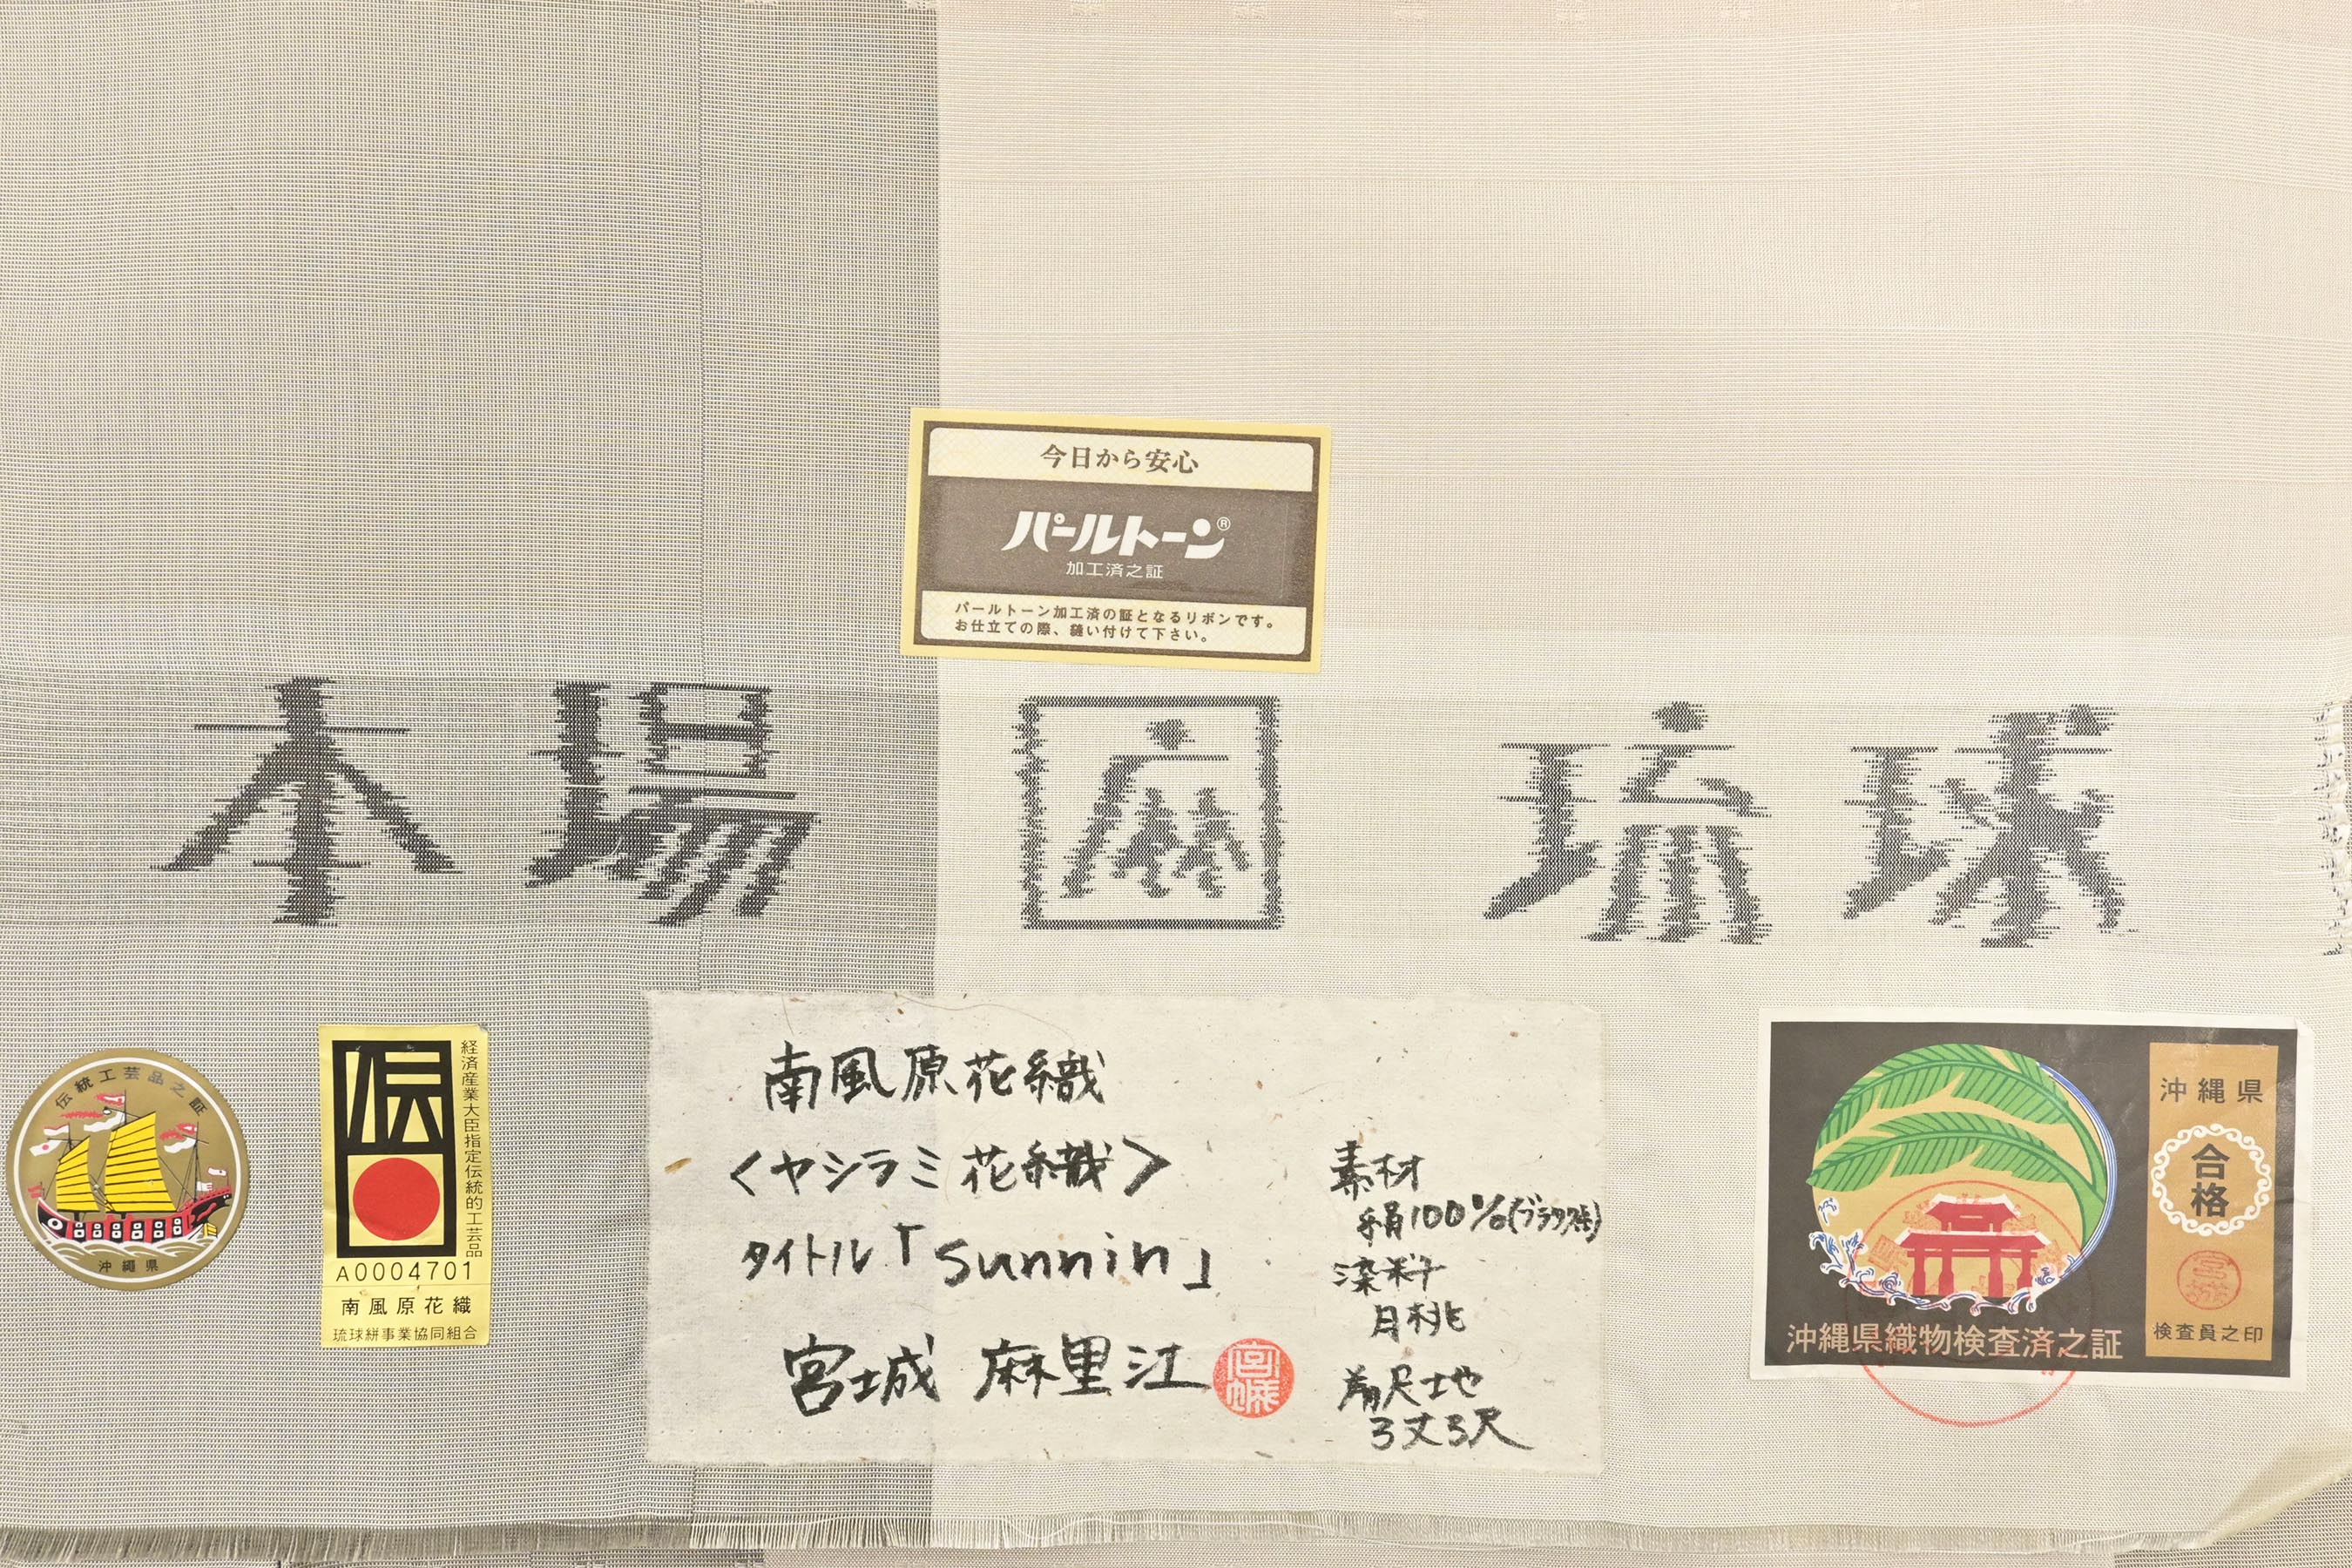 今日から安心
パールトーン®
加工済之証
パールトーン加工済の証となるリボンです。
お仕立ての際、縫い付けて下さい。
本場 麻 琉球
伝統工芸品之証
沖縄県
伝
経済産業大臣指定伝統的工芸品
A0004701
南風原花織
琉球絣事業協同組合
南風原花織
<ヤシラミ花織>
タイトル「sunnin」
宮城 麻里江
宮城
素材
絹100%(ブラタク糸)
染料
月桃
着尺地
3丈3尺
沖縄県
合格
検査員之印
沖縄県織物検査済之証